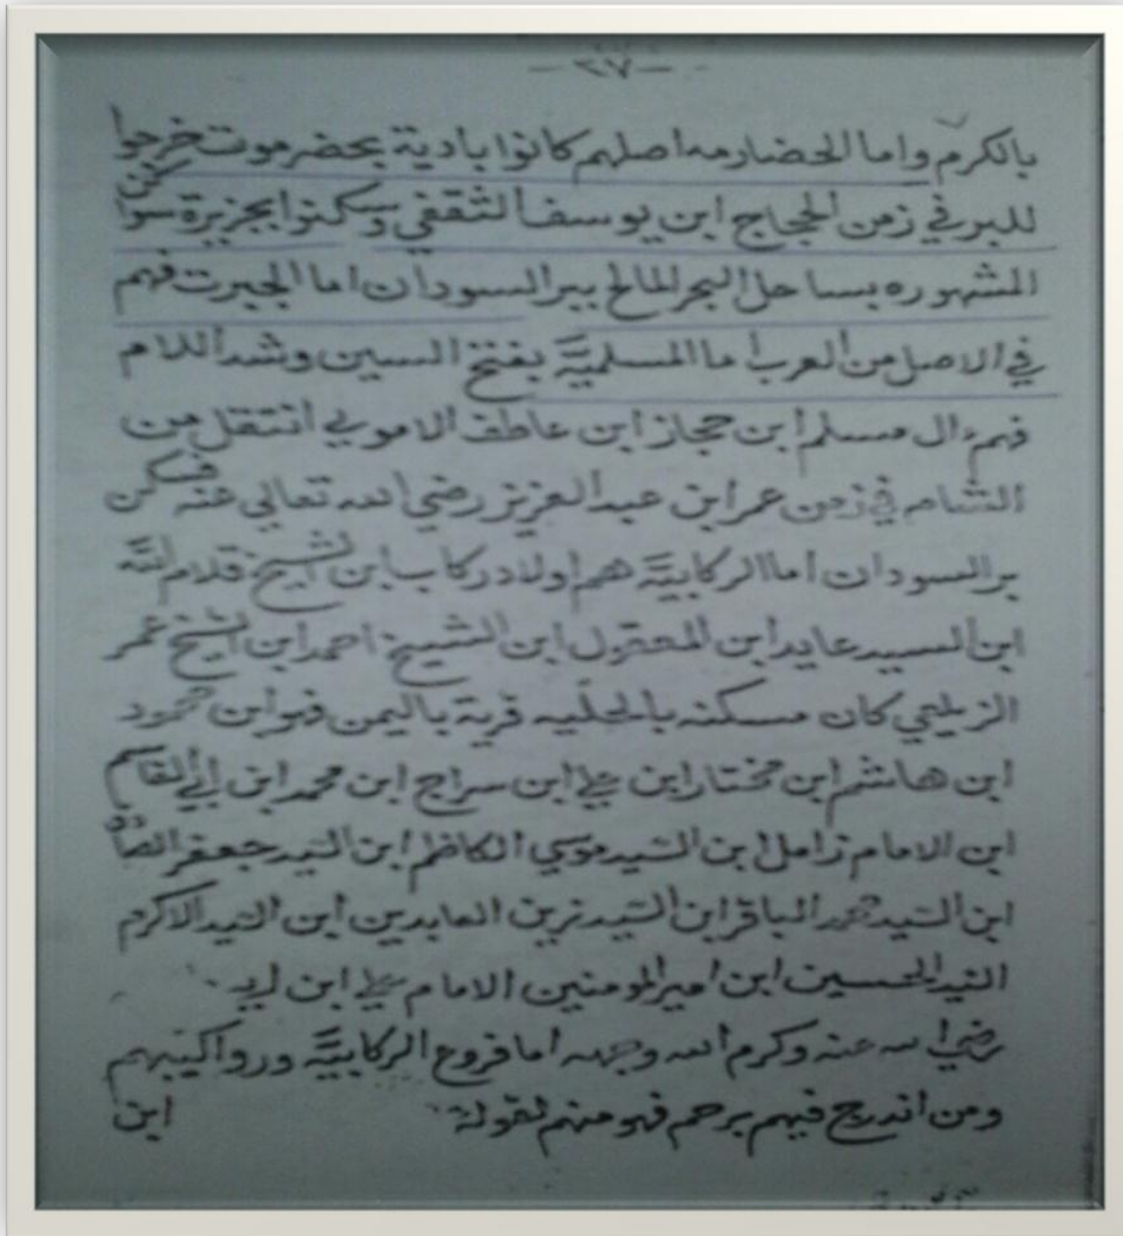 - ٢٧ -
بالكرم واما الحضارمه اصلهم كانوا بادية بحضرموت خرجوا
للبر في زمن الحجاج ابن يوسف الثقفي وسكنوا بجزيرة سواكن
المشهوره بساحل البحر المالح ببر السودان اما الجبرت فهم
في الاصل من العرب اما المسلميَّة بفتح السين وشد اللام
فهم ءال مسلم ابن حجاز ابن عاطف الاموي انتقل من
الشام في زمن عمر ابن عبد العزيز رضي الله تعالى عنه فسكن
بر السودان اما الركابيَّة هم اولاد ركاب ابن الشيخ غلام الله
ابن السيد عايد ابن المقبول ابن الشيخ احمد ابن الشيخ عمر
الزيلعي كان مسكنه بالحلّيه قرية باليمن فهو ابن محمود
ابن هاشم ابن مختار ابن علي ابن سراج ابن محمد ابن ابي القاسم
ابن الامام زامل ابن السّيد موسي الكاظم ابن السّيد جعفر الصادق
ابن السّيد محمد الباقر ابن السّيد زين العابدين ابن السّيد الاكرم
السّيد الحسين ابن امير المومنين الامام علي ابن
رضي الله عنه وكرم الله وجهه اما فروع الركابيَّة ورواكيبهم
ومن اندرج فيهم برحم فهو منهم لقولة
ابن